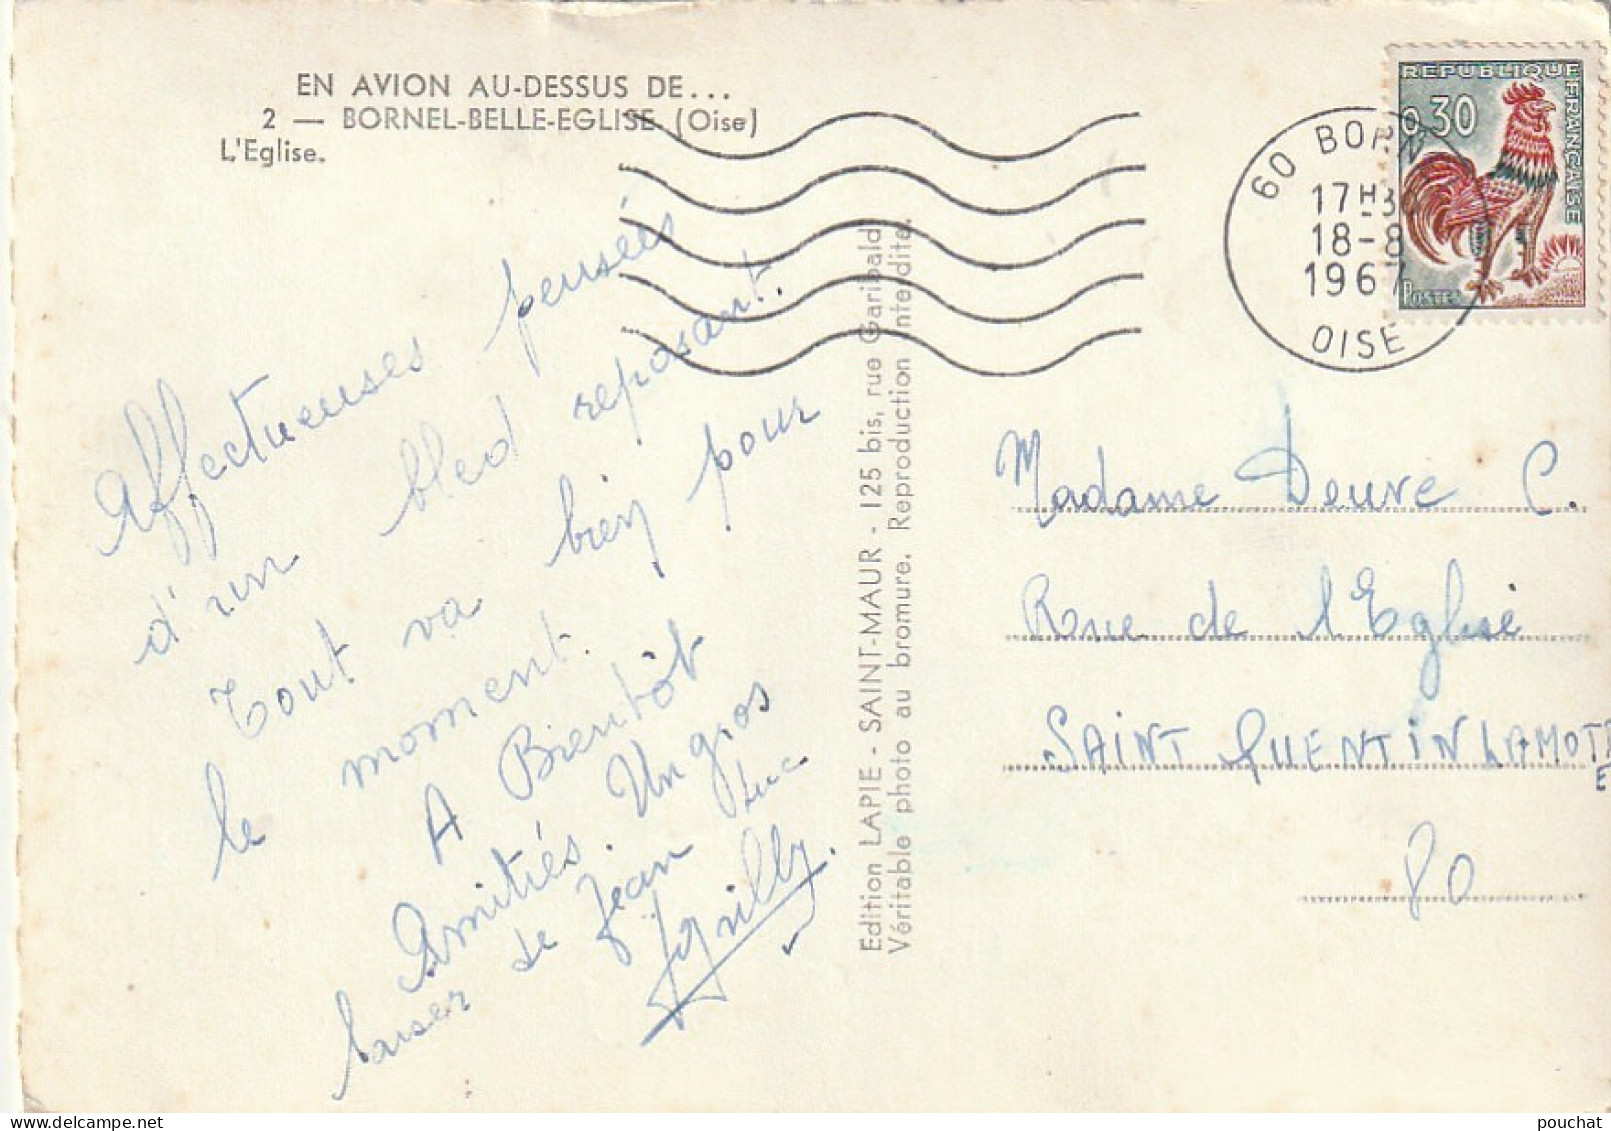 EN AVION AU-DESSUS DE...
2 — BORNEL-BELLE-EGLISE (Oise)
L'Eglise.
REPUBLIQUE FRANÇAISE
0,30
POSTES
60 BORN
17H30
18-8
1967
OISE
Affectueuses pensées
d'un bled reposant.
Tout va bien pour
le moment.
A Bientôt
Amitiés. Un gros
baiser de Jean Luc
Edition LAPIE - SAINT-MAUR - 125 bis, rue Garibaldi
Véritable photo au bromure. Reproduction interdite.
Madame Deuve C.
Rue de l'Eglise
SAINT QUENTIN LAMOTTE
80
pouchat